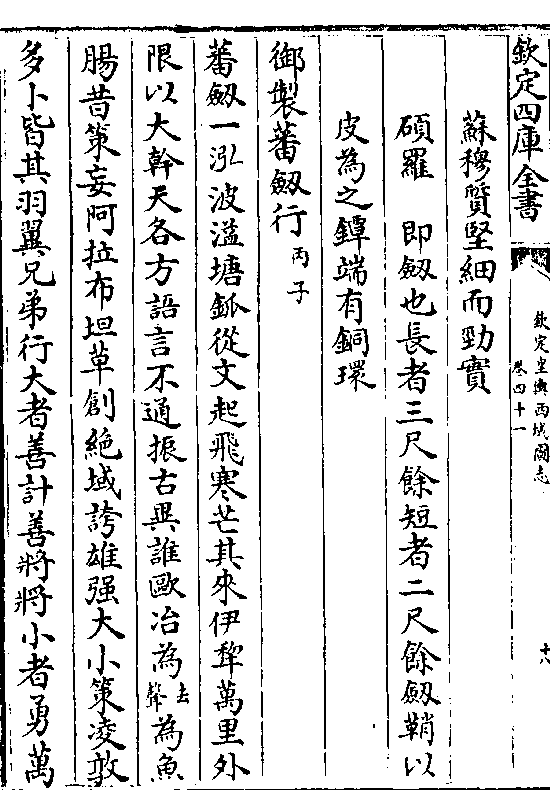 欽定四庫全書
欽定皇輿西域圖志
卷四十一
十八
蘇穆質堅細而勁實
碩羅 即劒也長者三尺餘短者二尺餘劒鞘以
皮為之鐔端有銅環
御製蕃劒行丙子
蕃劒一泓波溢塘鈲從文起飛寒芒其來伊犂萬里外
限以大幹天各方語言不通振古異誰歐冶為去聲為魚
腸昔策妄阿拉布坦草創絶域誇雄强大小策凌敦
多卜皆其羽翼兄弟行大者善計善將將小者勇萬